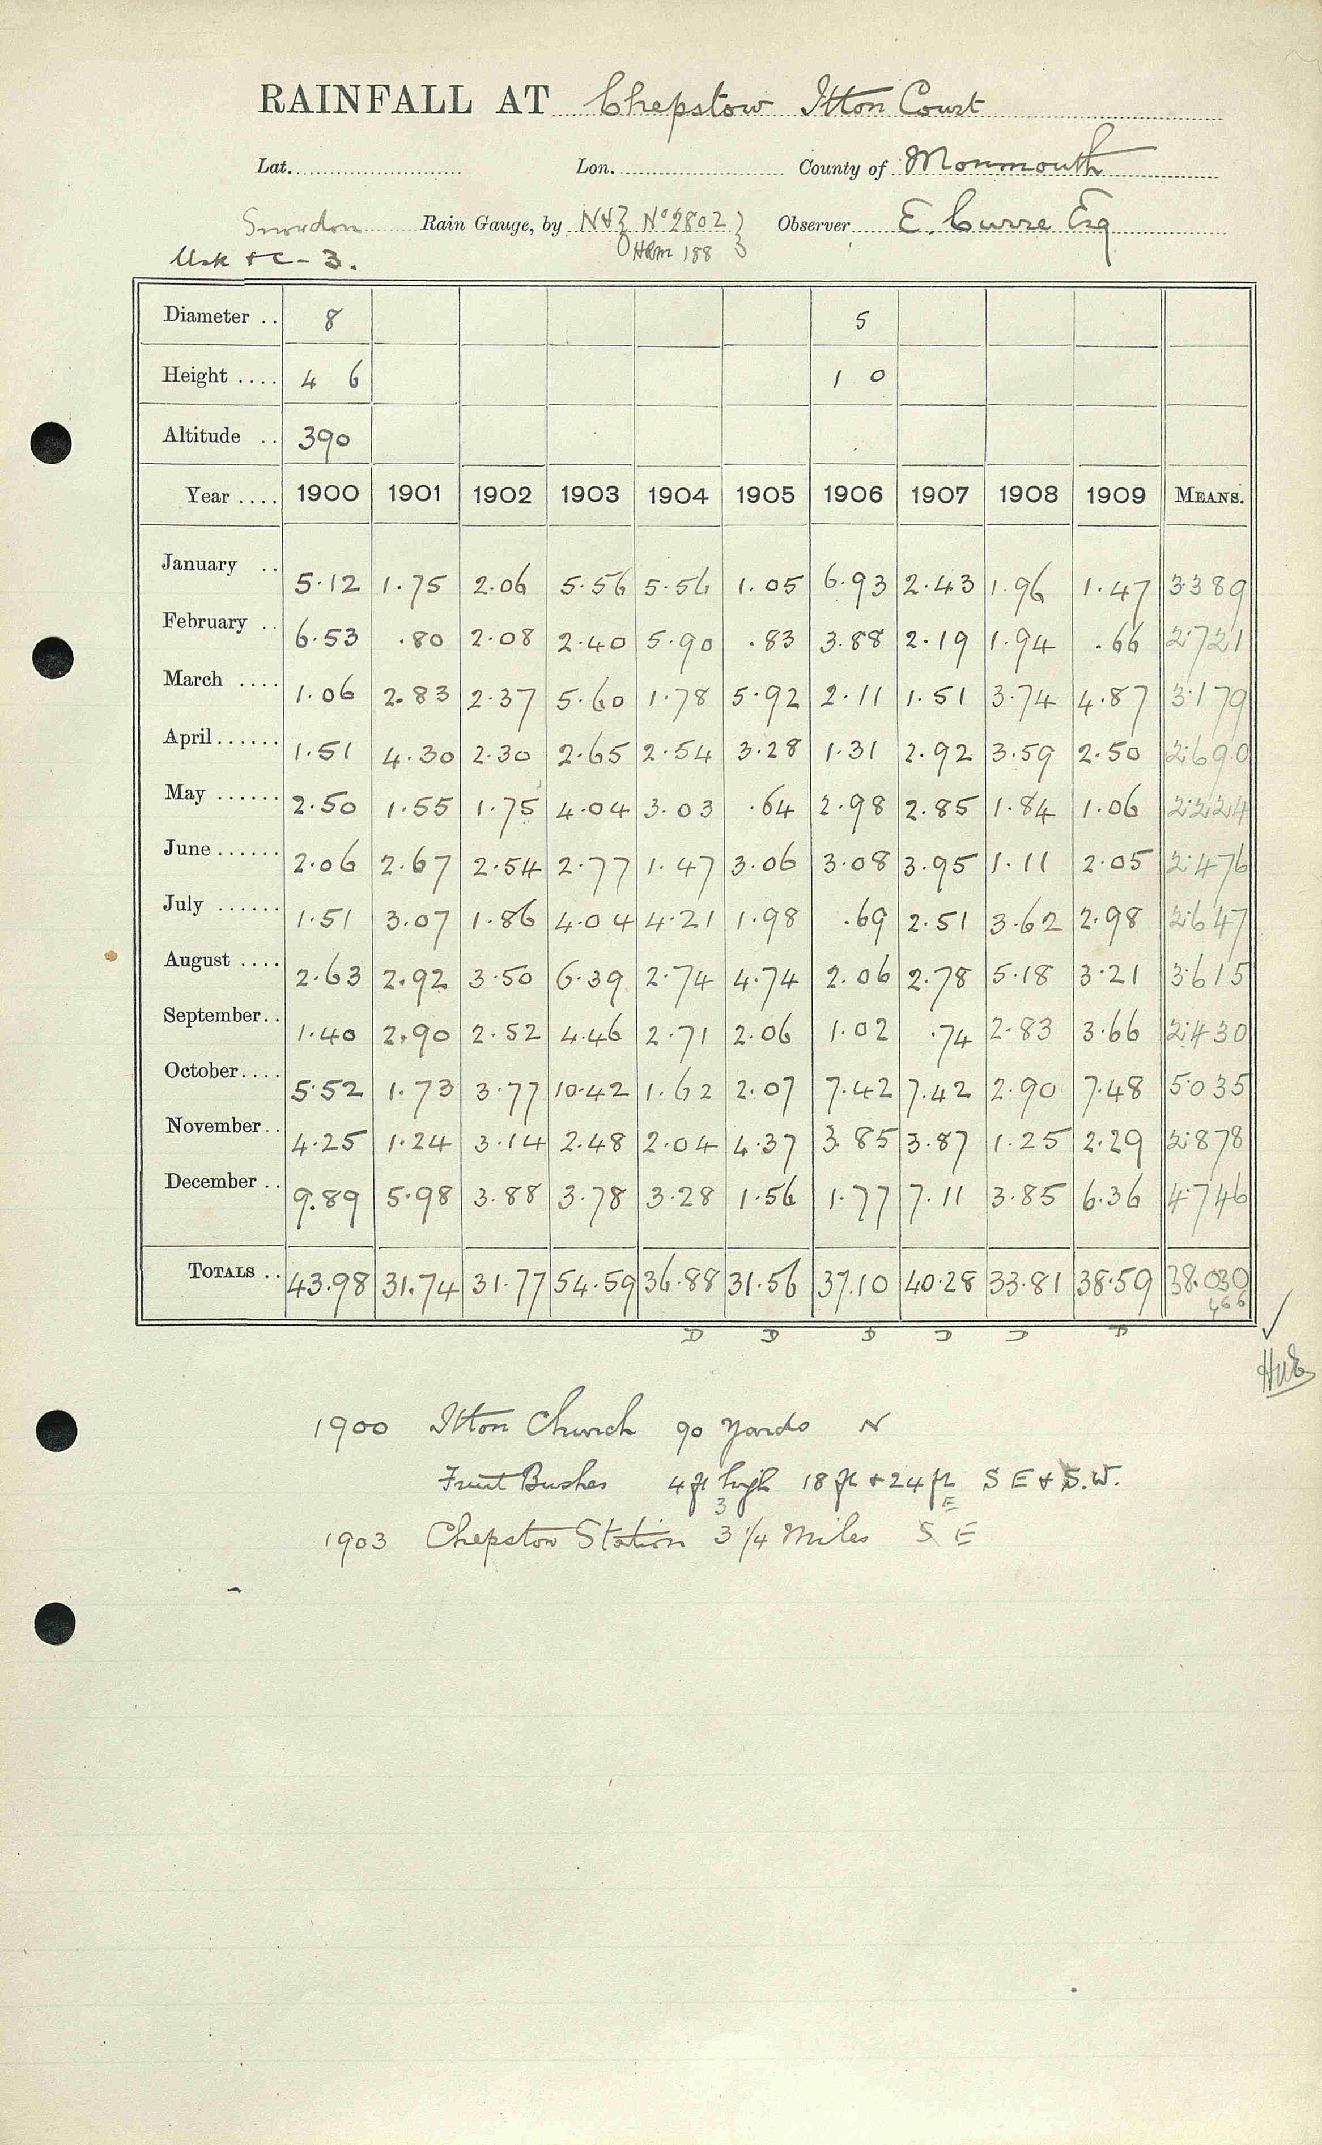 RAINFALL AT Chepstow Itton Court
Lat. Lon. County of Monmouth
Snowdon Rain Gauge, by N&Z No 2802 Observer E. Curre Esq
Usk & C - 3. 188
Diameter .. 8 5
Height .... 4 6 1 0
Altitude .. 390
Year .... 1900 1901 1902 1903 1904 1905 1906 1907 1908 1909 MEANS.
January .. 5.12 1.75 2.06 5.56 5.56 1.05 6.93 2.43 1.96 1.47 3.389
February .. 6.53 .80 2.08 2.40 5.90 .83 3.88 2.19 1.94 .66 2.721
March .... 1.06 2.83 2.37 5.60 1.78 5.92 2.11 1.51 3.74 4.87 3.179
April...... 1.51 4.30 2.30 2.65 2.54 3.28 1.31 2.92 3.59 2.50 2.690
May ...... 2.50 1.55 1.75 4.04 3.03 .64 2.98 2.85 1.84 1.06 2.224
June...... 2.06 2.67 2.54 2.77 1.47 3.06 3.08 3.95 1.11 2.05 2.476
July ...... 1.51 3.07 1.86 4.04 4.21 1.98 .69 2.51 3.62 2.98 2.647
August .... 2.63 2.92 3.50 6.39 2.74 4.74 2.06 2.78 5.18 3.21 3.615
September.. 1.40 2.90 2.52 4.46 2.71 2.06 1.02 .74 2.83 3.66 2.430
October.... 5.52 1.73 3.77 10.42 1.62 2.07 7.42 7.42 2.90 7.48 5.035
November.. 4.25 1.24 3.14 2.48 2.04 4.37 3.85 3.87 1.25 2.29 2.878
December .. 9.89 5.98 3.88 3.78 3.28 1.56 1.77 7.11 3.85 6.36 4.746
TOTALS .. 43.98 31.74 31.77 54.59 36.88 31.56 37.10 40.28 33.81 38.59 38.030
D D D D D D
1900 Itton Church 90 yards N
Fruit Bushes 4 ft high 18 ft + 24 ft S E & S.W.
3 E
1903 Chepstow Station 3 1/4 Miles S E